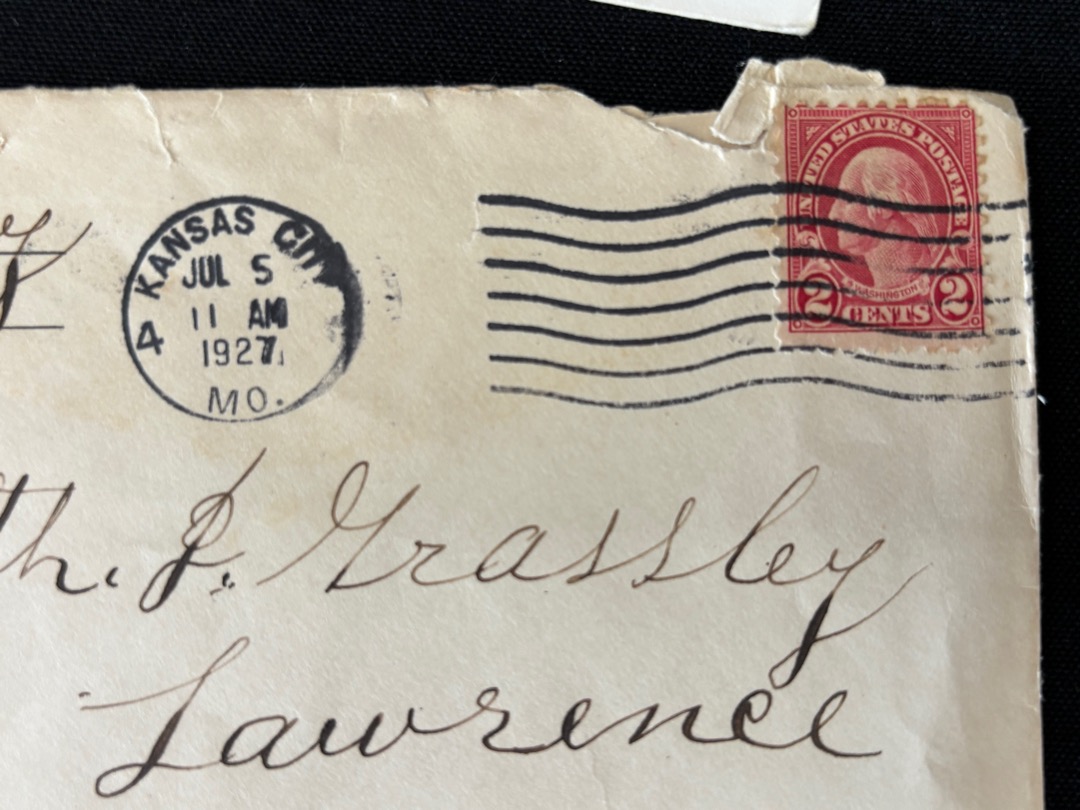 UNITED STATES POSTAGE
WASHINGTON
2 CENTS 2
KANSAS CITY
JUL 5
11 AM
1927
MO.
4
th. J. Grassley
Lawrence